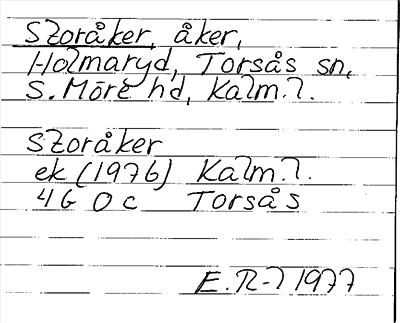 Storåker, åker,
Holmaryd, Torsås sn,
S. Möre hd, Kalm. l.
Storåker
ek (1976) Kalm. l.
4G 0c Torsås
E. R-l 1977